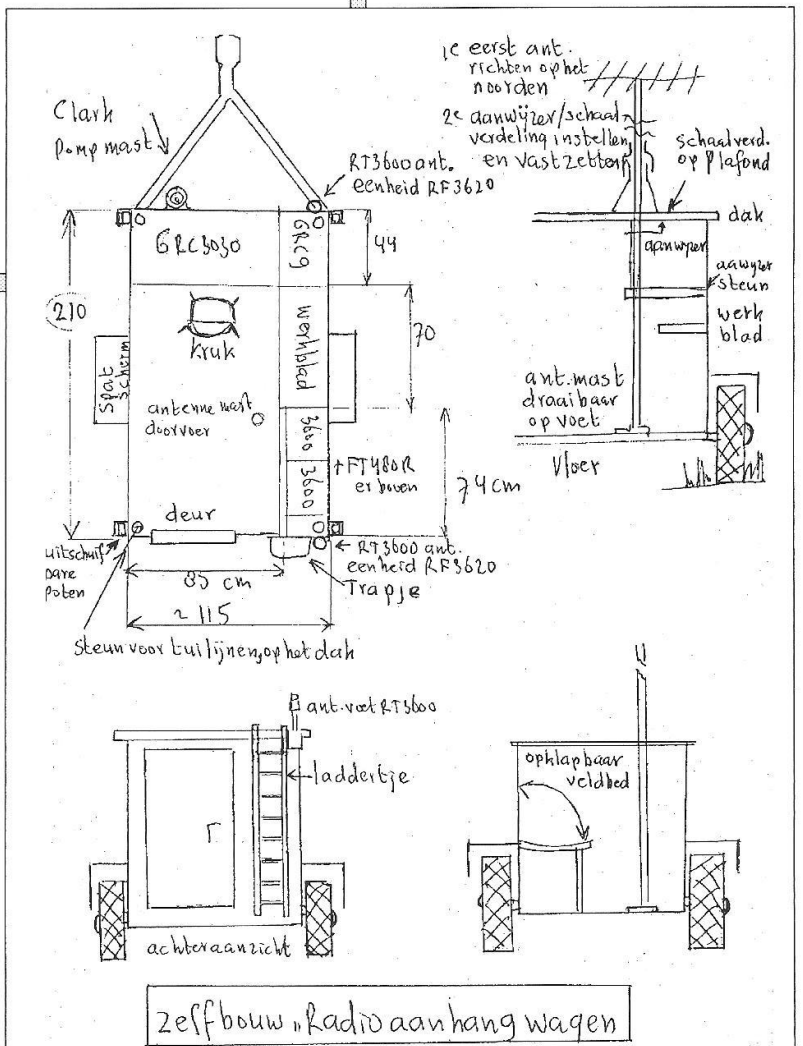 Clark
pompmast
RT3600 ant.
eenheid RF3620
GRC3030
GRC9
44
210
kruk
werkblad
70
spat
scherm
antenne mast
doorvoer
3600
3600
FT480R
er boven
74cm
deur
uitschuif
bare
poten
RT3600 ant.
eenheid RF3620
Trapje
85 cm
~ 115
steun voor tuilijnen, op het dak
1e eerst ant.
richten op het
noorden
2e aanwijzer/schaal
verdeling instellen
en vastzetten
schaalverd.
op plafond
dak
aanwijzer
aawijzer
steun
werk
blad
ant.mast
draaibaar
op voet
vloer
ant.voet RT3600
laddertje
achteraanzicht
opklapbaar
veldbed
zelfbouw „Radioaanhangwagen